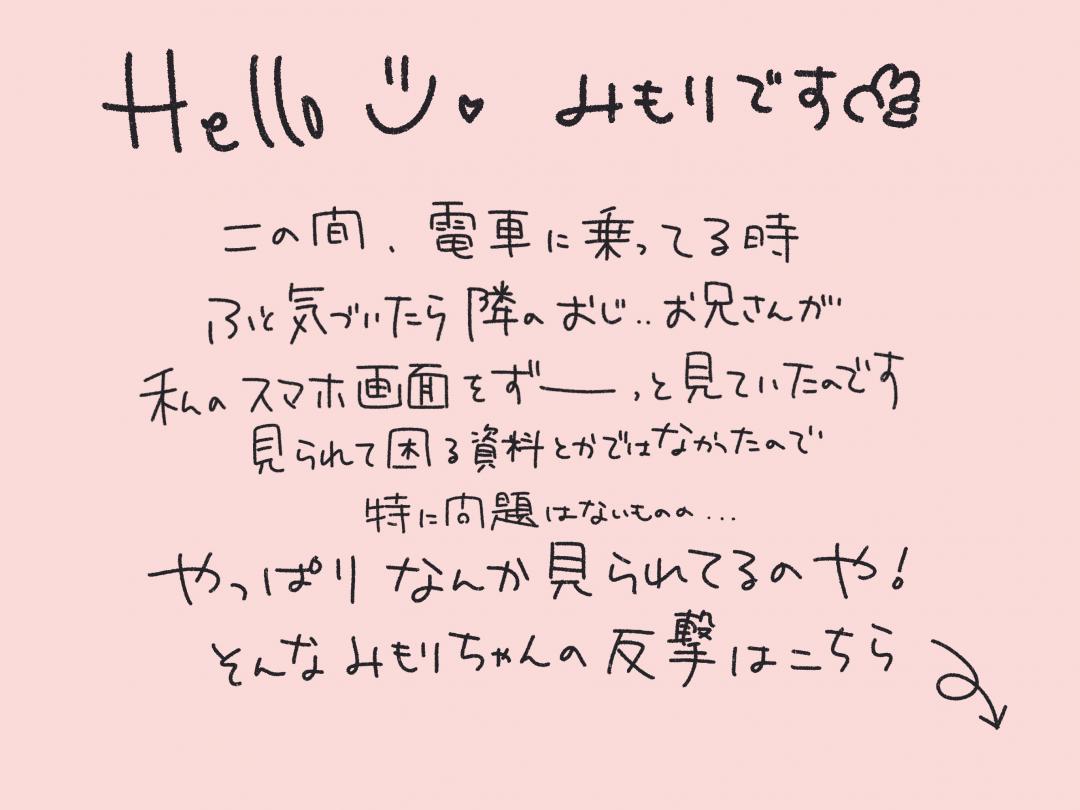 Hello みもりです
この間、電車に乗ってる時
ふと気づいたら隣のおじ..お兄さんが
私のスマホ画面をずーーっと見ていたのです
見られて困る資料とかではなかったので
特に問題はないものの...
やっぱりなんか見られてるのや!
そんなみもりちゃんの反撃はこちら